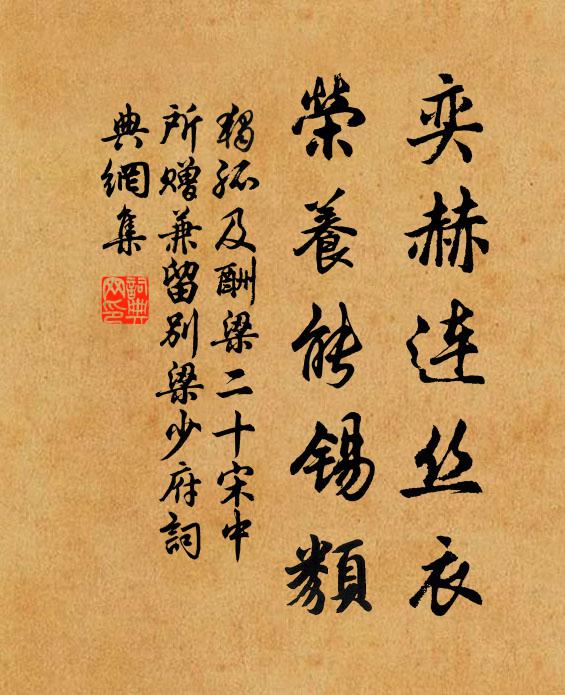 奕赫连丝衣
荣養能锡類
獨孤及酬梁二十宋中
所贈兼留别梁少府詞
典網集
詞典网印